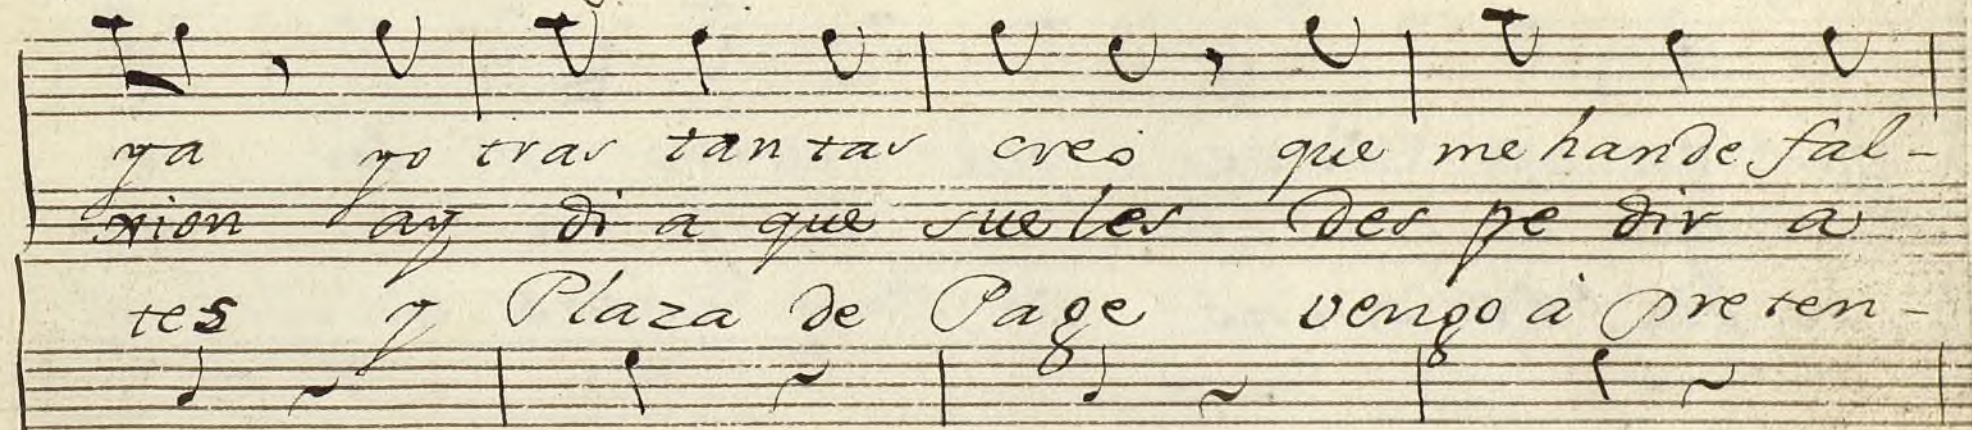 ya yo tras tan tas creo que me han de fal-
xion ay di a que sue les des pe dir a
tes y Plaza de Page vengo à preten-